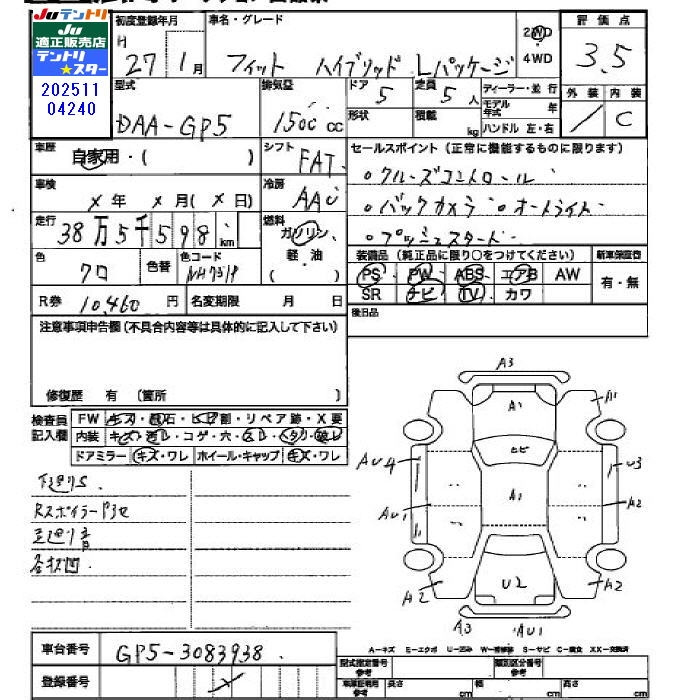 Juテントリ
Ju
適正販売店
テントリ
★スター
202511
04240
初度登録年月
H 27 1月
車名・グレード
フィット ハイブリッド Lパッケージ
2WD
4WD
評価点
3.5
外装 内装
/ C
型式
DAA-GP5
排気量
1500 cc
ドア
5
形状
定員
5人
積載
kg
ディーラー・並行
モデル年式 年
ハンドル 左・右
車歴
自家用・( )
シフト
FAT
セールスポイント(正常に機能するものに限ります)
・クルーズコントロール
・バックカメラ ・オートライト
・プッシュスタート
車検
×年 ×月(×日)
冷房
AAC
走行
38万5千598km
燃料
ガソリン
軽・油
( )
色
クロ
色替
色コード
R券 10,460円
名変期限 月 日
装備品(純正品に限り○をつけてください)
PS PW ABS エアB AW
SR ナビ TV カワ
新車保証書
有・無
後日品
注意事項申告欄(不具合内容等は具体的に記入して下さい)
修復歴 有 (箇所 )
検査員
記入欄
FW キズ・飛石・ヒビ割・リペア跡・X要
内装 キズ・汚レ・コゲ・穴・スレ・ヘタリ・破レ
ドアミラー キズ・ワレ ホイール・キャップ キズ・ワレ
下廻りS
各状凹
A3
A1
A1
ヒビ
AU4
U3
A1
AU1
A2
U2
A2
A2
A3
AU1
A-キズ E-エクボ U-凹み W-補修跡 S-サビ C-腐食 XX-交換済
車台番号
GP5-3083938
登録番号
×
型式指定番号
参考
類別区分番号
参考
車庫証明用
参考
長さ cm
幅 cm
高さ cm